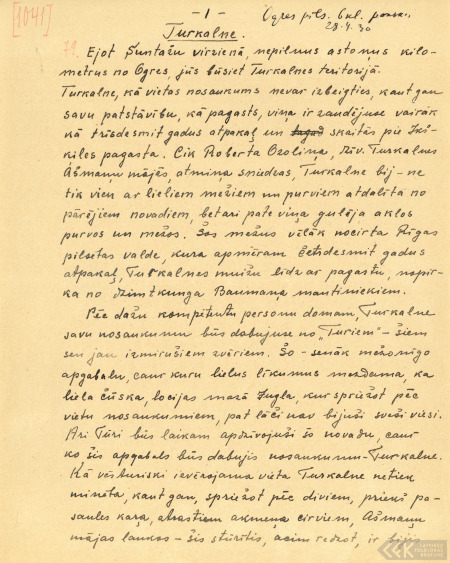 [1041]
- 1 -
Ogres pils. 6 kl. pamsk.
28.4.30
Turkalne.
79. Ejot Šuntažu virzienā, nepilnus astoņus kilo-
metrus no Ogres, jūs būsiet Turkalnes teritorijā.
Turkalne, kā vietas nosaukums nevar izbeigties, kaut gan
savu patstāvību, kā pagasts, viņa ir zaudējuse vairāk
kā trīsdesmit gadus atpakaļ un skaitās pie Ik̦š-
ķiles pagasta. Cik Roberta Ozoliņa, dzīv. Turkalnes
Ašmaņu mājās, atmiņa sniedzas, Turkalne bij - ne
tik vien ar lieliem mežiem un purviem atdalīta no
pārējiem novadiem, bet arī pate viņa gulēja aklos
purvos un mežos. Šos mežus vēlāk nocirta Rīgas
pilsētas valde, kura apmēram četrdesmit gadus
atpakaļ, Turkalnes muižu līdz ar pagastu, nopir-
ka no dzimtkunga Baumaņa mantiniekiem.
Pēc dažu kompetentu personu domam, Turkalne
savu nosaukumu būs dabujuse no „Turiem" - šiem
sen jau izmirušiem zvēriem. Šo - senāk mežonīgo
apgabalu, caur kuru lielus līkumus mezdama, kā
liela čūska, locijas mazā Jugla, kur spriežot pēc
vietu nosaukumiem, pat lāči nav bijuši sveši viesi.
Arī Tūri būs laikam apdzīvojuši šo novadu, caur
ko šis apgabals būs dabujis nosaukumu - Turkalne.
Kā vēsturiski ievērojama vieta Turkalne netiek
minēta, kaut gan, spriežot pēc diviem, priekš pa-
saules kara, atrastiem akmeņa cirvjiem, Ašmaņu
mājas laukos - šis stūrītis, acim redzot, ir bijis